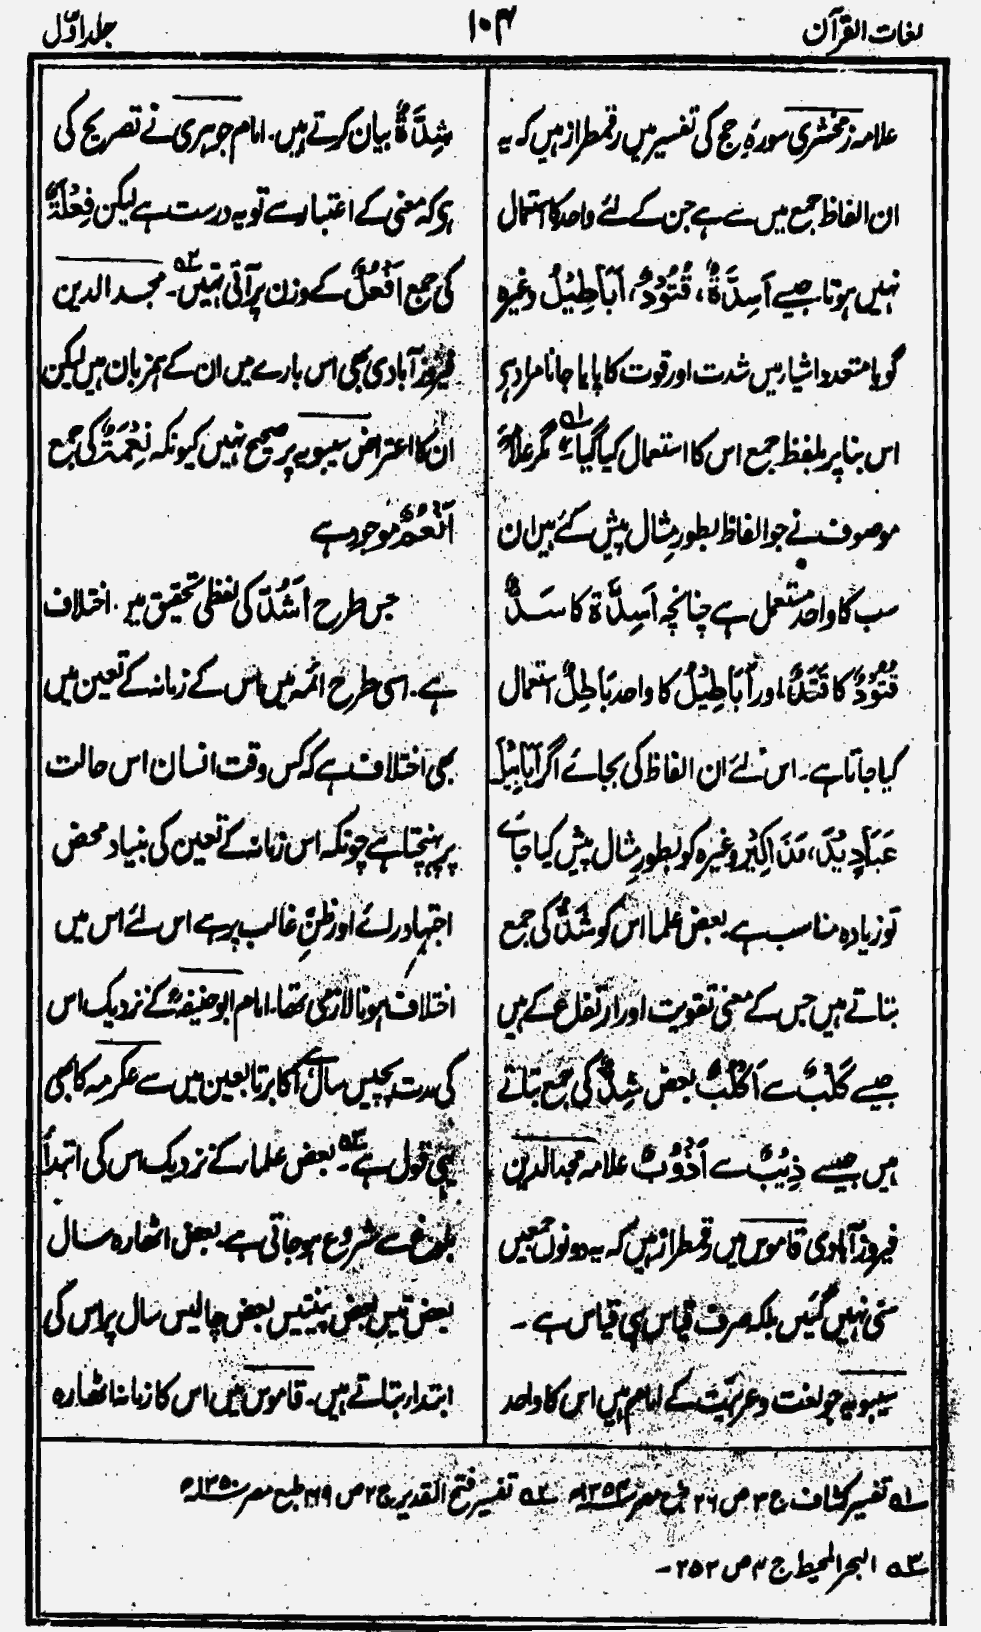 لغات القرآن
۱۰۴
جلد اوّل
علامہ زمخشری سورۂ حج کی تفسیر میں رقمطراز ہیں کہ یہ
ان الفاظ جمع میں سے ہے جن کے لئے واحد کا استعمال
نہیں ہوتا جیسے اَسِدَّۃٌ، قُتُوْدٌ، اَبَاطِیْلُ وغیرہ
گویا متعدد اشیار میں شدت اور قوت کا پایا جانا مراد ہی
اس بنا پر بلفظ جمع اس کا استعمال کیا گیا۔ ۱؎ مگر علامہ
موصوف نے جو الفاظ بطور مثال پیش کئے ہیں ان
سب کا واحد مستعمل ہے چنانچہ اَسِدَّۃ کا سَدٌّ
قُتُوْدٌ کا قَتَدٌ، اور اَبَاطِیْلُ کا واحد بَاطِلٌ استعمال
کیا جاتا ہے۔ اس لئے ان الفاظ کی بجائے اگر اَبَابِیْلَ
عَبَادِیْدَ، مَذَاکِیْر وغیرہ کو بطور مثال پیش کیا جائے
تو زیادہ مناسب ہے بعض علما اس کو شَدٌّ کی جمع
بتاتے ہیں جس کے معنی تقویت اور ارتفاع کے ہیں
جیسے کَلْبٌ سے اَکْلُبٌ بعض شِدٌّ کی جمع بتاتے
ہیں جیسے ذِئْبٌ سے اَذْؤُبٌ علامہ مجد الدین
فیروز آبادی قاموس میں رقمطراز ہیں کہ یہ دونوں جمعیں
سنی نہیں گئیں بلکہ صرف قیاس ہی قیاس ہے۔
سیبویہ جو لغت و عربیّت کے امام ہیں اس کا واحد
شِدَّۃٌ بیان کرتے ہیں۔ امام جوہری نے تصریح کی
ہی کہ معنی کے اعتبار سے تو یہ درست ہے لیکن فِعْلَۃٌ
کی جمع اَفْعُلٌ کے وزن پر آتی نہیں۔ ۲؎ مجد الدین
فیروز آبادی بھی اس بارے میں ان کے ہمزبان ہیں لیکن
ان کا اعتراض سیبویہ پر صحیح نہیں کیونکہ نِعْمَۃٌ کی جمع
اَنْعُمٌ موجود ہے
جس طرح اَشُدّ کی لفظی تحقیق میں اختلاف
ہے۔ اسی طرح ائمہ میں اس کے زمانہ کے تعین میں
بھی اختلاف ہے کہ کس وقت انسان اس حالت
پر پہنچتا ہے چونکہ اس زمانہ کے تعین کی بنیاد محض
اجتہاد رائے اور ظنِّ غالب پر ہے اس لئے اس میں
اختلاف ہونا لازمی تھا۔ امام ابو حنیفہؒ کے نزدیک اس
کی مدت پچیس سال ہے اکابر تابعین میں سے عکرمہ کا بھی
یہی قول ہے۔ ۳؎ بعض علمار کے نزدیک اس کی ابتدأ
بلوغ سے شروع ہو جاتی ہے۔ بعض اٹھارہ سال
بعض تیس بعض پینتیس بعض چالیس سال پر اس کی
ابتدار بتاتے ہیں۔ قاموس میں اس کا زمانہ اٹھارہ
۱؎ تفسیر کشاف ج ۳ ص ۲۶ طبع مصر ۱۳۵۴ھ ۲؎ تفسیر فتح القدیر ج ۲ ص ۲۶۹ طبع مصر ۱۳۵۰ھ
۳؎ البحر المحیط ج ۴ ص ۲۵۲۔